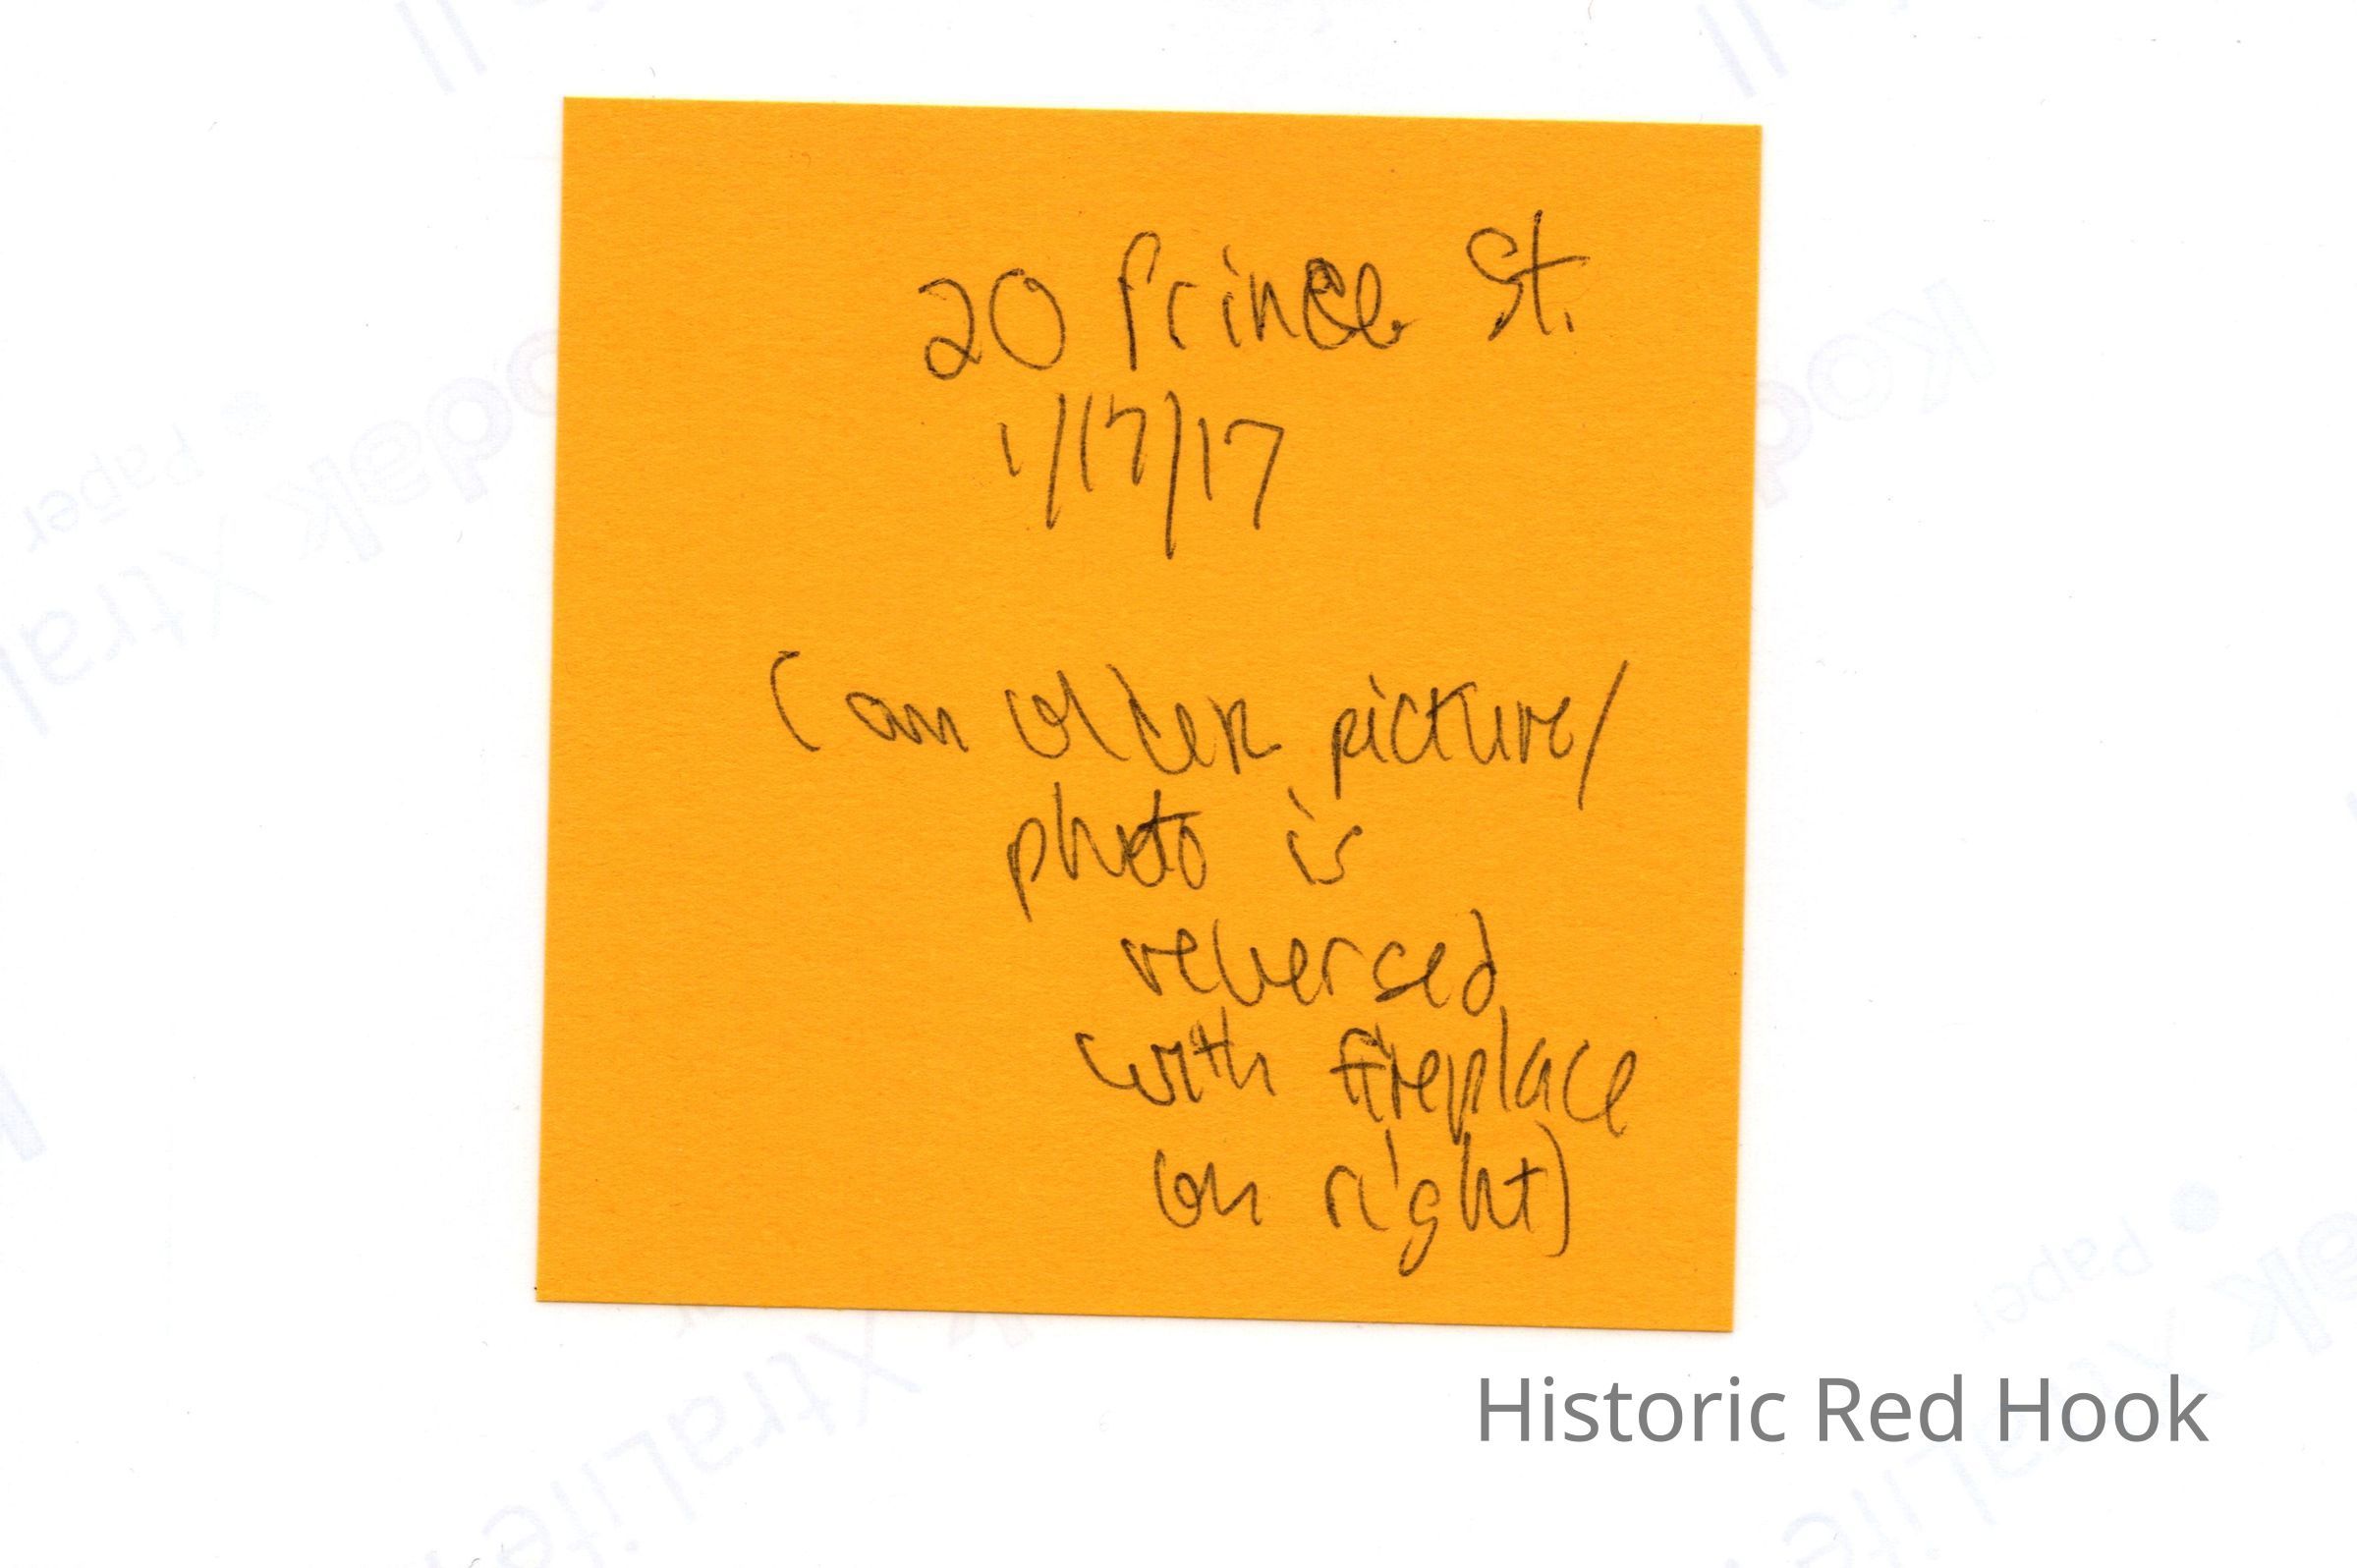 20 Prince St.
1/17/17
(an older picture/
photo is
reversed
with fireplace
on right)
Historic Red Hook